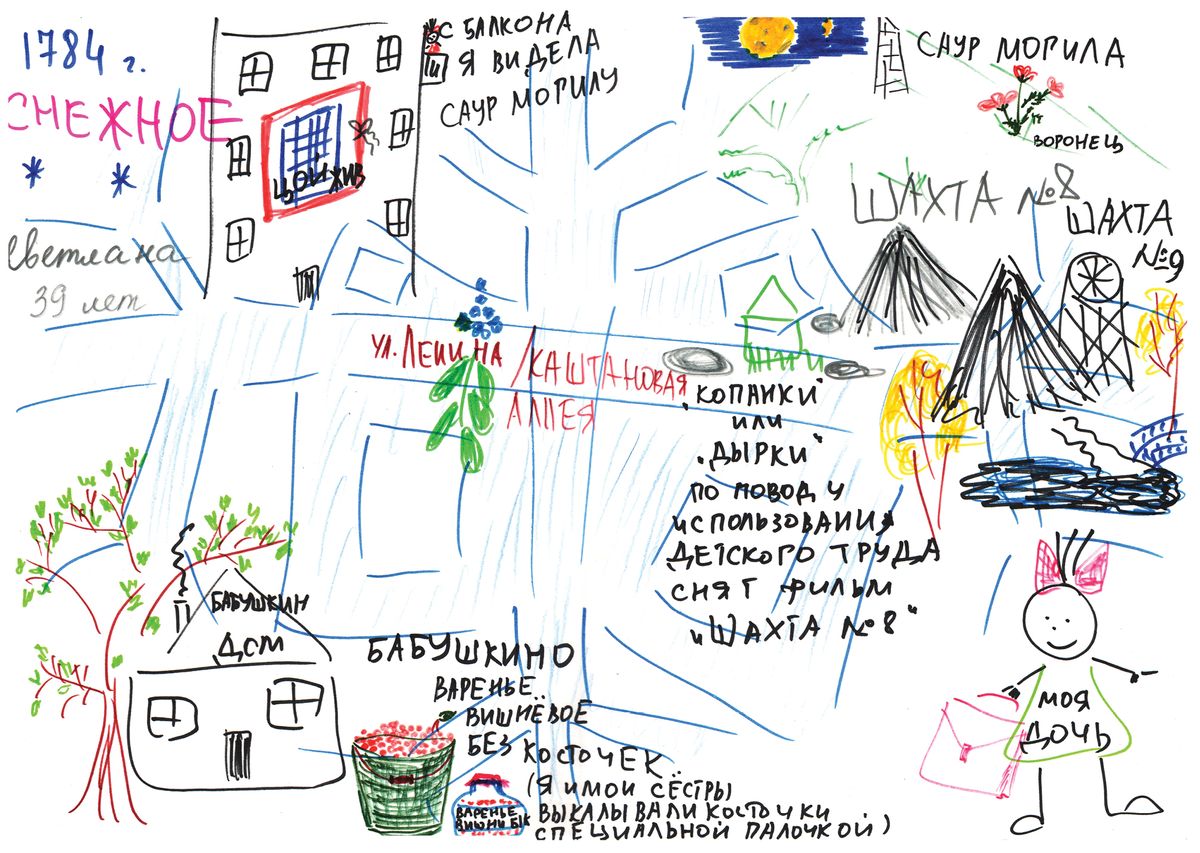 1784 г.
СНЕЖНОЕ
Светлана
39 лет
ЦОЙ ЖИВ
С БАЛКОНА
Я ВИДЕЛА
САУР МОГИЛУ
САУР МОГИЛА
ВОРОНЕЦ
ШАХТА №8
ШАХТА
№9
УЛ. ЛЕНИНА /КАШТАНОВАЯ
АЛЛЕЯ
"КОПАНКИ"
ИЛИ
"ДЫРКИ"
ПО ПОВОДУ
ИСПОЛЬЗОВАНИЯ
ДЕТСКОГО ТРУДА
СНЯТ ФИЛЬМ
"ШАХТА №8"
БАБУШКИН
ДОМ
БАБУШКИНО
ВАРЕНЬЕ
ВИШНЁВОЕ
БЕЗ КОСТОЧЕК
(Я И МОИ СЁСТРЫ
ВЫКАЛЫВАЛИ КОСТОЧКИ
СПЕЦИАЛЬНОЙ ПАЛОЧКОЙ)
ВАРЕНЬЕ
ВИШНИ Б\К
МОЯ
ДОЧЬ